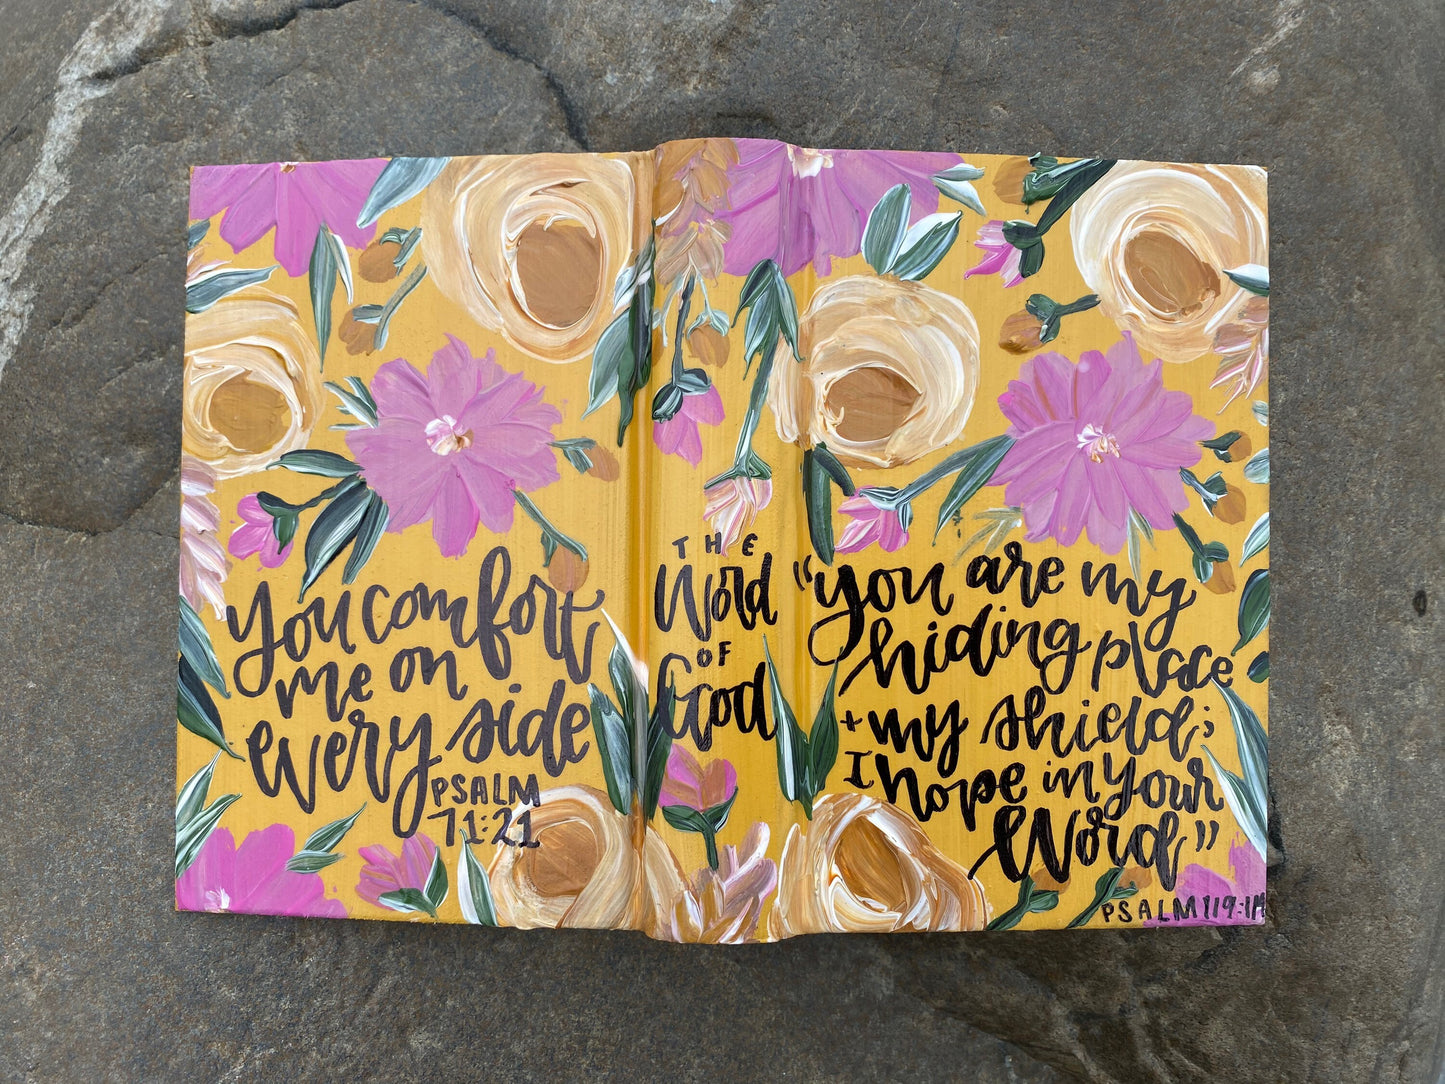 You comfort
me on
every side
PSALM
71:21
THE
Word
OF
God
"you are my
hiding place
+ my shield;
I hope in your
Word"
PSALM 119:114